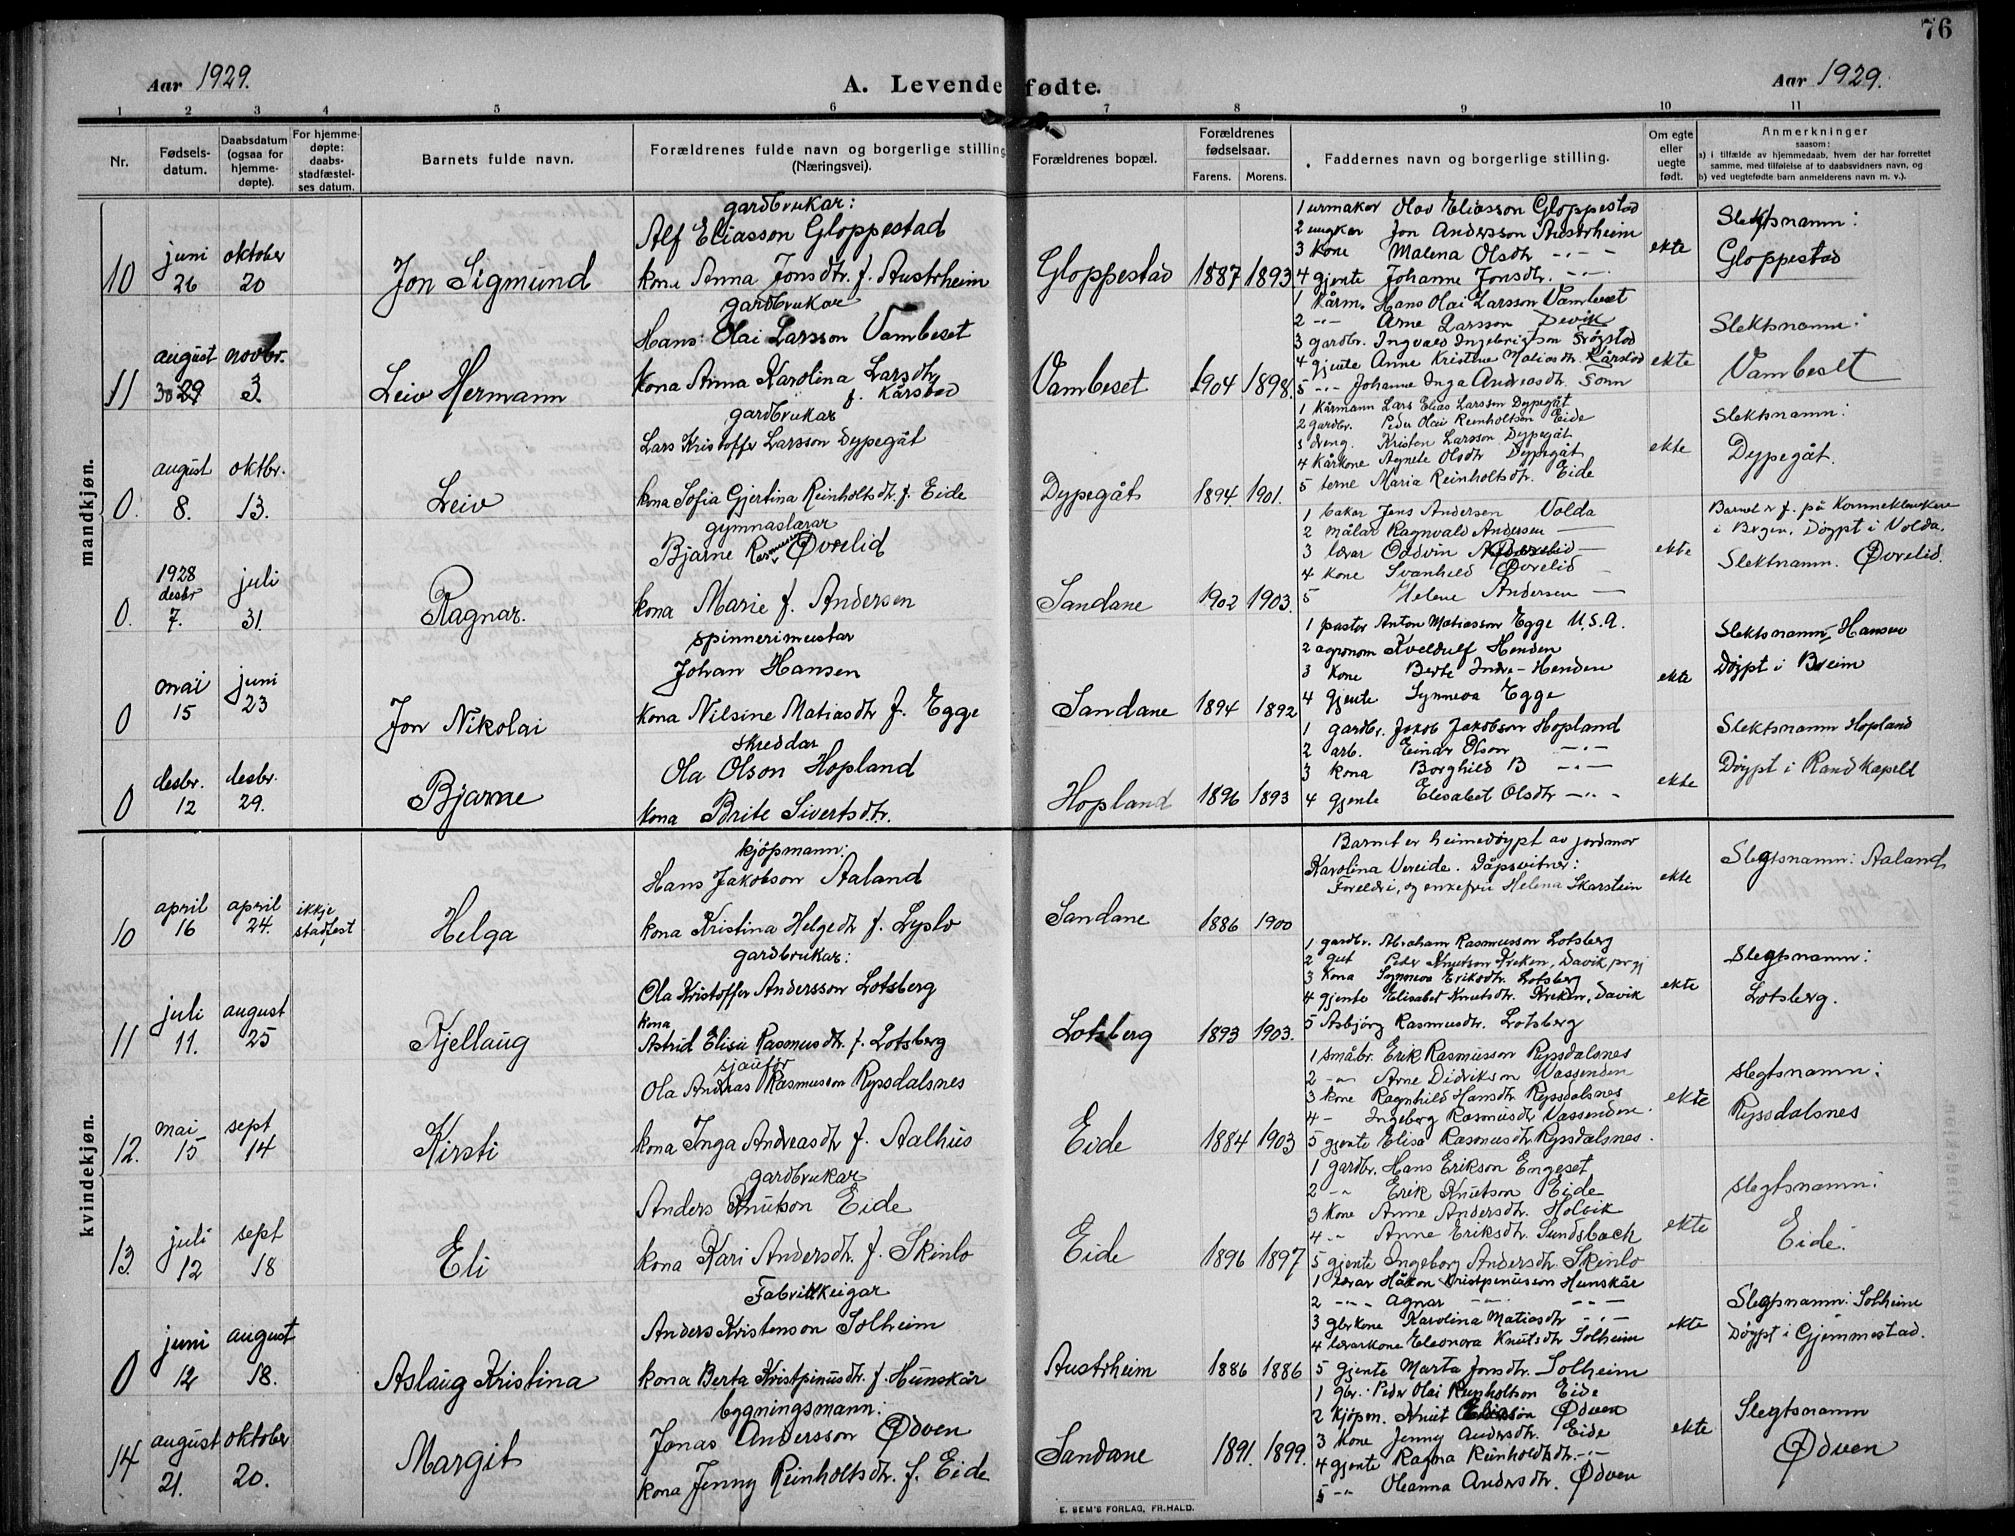 76
Aar 1929.
A. Levendefødte.
Aar 1929.
1 2 3 4 5 6 7 8 9 10 11
Nr.
Fødsels-
datum.
Daabsdatum
(ogsaa for
hjemme-
døpte).
For hjemme-
døpte:
daabs-
stadfæstel-
ses datum.
Barnets fulde navn.
Forældrenes fulde navn og borgerlige stilling
(Næringsvei).
Forældrenes bopæl.
Forældrenes
fødselsaar.
Farens. Morens.
Faddernes navn og borgerlige stilling.
Om egte
eller
uegte
født.
Anmerkninger
saasom:
a) i tilfælde av hjemmedaab, hvem der har forrettet
samme, med tilføielse af to daabsvidners navn, og
b) ved uegtefødte barn anmelderens navn m. v.).
mandkjøn.
10
juni
26
oktober
20
Jon Sigmund
gardbrukar:
Alf Eliasson Gloppestad
kona Anna Jonsdtr. f. Austrheim
Gloppestad 1887 1893
1 urmakar Olav Eliasson Gloppestad
2 ungkar Jon Andersson Austrheim
3 kone Malena Olsdtr — " —
4 gjente Johanne Jonsdtr. — " —
ekte
Slektsnamn:
Gloppestad
11
august
30 29
novbr.
3.
Leiv Hermann
gardbrukar
Hans Olai Larsson Vambeset
kona Anna Karolina Larsdtr.
f. Kårstad
Vambeset 1904 1898.
1 Kårm. Hans Olai Larsson Vambeset
2 — " — Arne Larsson Devik
3 gardbr. Ingvald Ingebrigtson
4 gjente Anne Kristine Matiasdtr. Kårstad
5 — " — Johanne Inga Andreasdtr. Sonn
ekte
Slektsnamn:
Vambeset
0.
august
8.
oktbr.
13.
Leiv
gardbrukar
Lars Kristoffer Larsson Dypegåt
kona Sofia Gjertina Reinholtsdtr. f. Eide
Dypegåt 1894. 1901.
1 Kårmann Lars Elias Larsson Dypegåt
2 gardbr. Peder Olai Reinholtson Eide
3 dreng. Kristen Larsson Dypegåt
4 Kårkone Agnete Olsdtr Dypegåt
5 terne Maria Reinholtsdtr. Eide
ekte
Slektsnamn:
Dypegåt.
0.
1928
desbr
7.
juli
31.
Ragnar.
gymnaslærar
Bjarne Rasmussen Øvrelid
kona Marie f. Andersen
Sandane 1902 1903.
1 bakar Jens Andersen Volda
2 målar Ragnvald Andersen —
3 lærar Oddvin —
4 kone Svanhild Øvrelid —
5 Helene Andersen —
ekte
Barnet er f. på
i Bergen. Døypt i Volda.
Slektnamn. Øvrelid.
0
mai
15
juni
23
Jon Nikolai
spinnerimeistar
Johan Hansen
kona Nilsine Matiasdtr f. Egge
Sandane 1894 1892
1 pastor Anton Matiasson Egge U.S.A.
2 agronom Kveldulf Henden
3 kone Berte Indre-Henden
4 gjente Synneva Egge
ekte
Slektsnamn, Hansen
Døypt i Breim
0
desbr.
12
desbr.
29.
Bjarne
skreddar
Ola Olson Hopland
kona Brite Sivertsdtr.
Hopland 1896 1893
1 gardbr. Jakob Jakobson Hopland
2 arb. Einar Olson — " —
3 kona Borghild B — " —
4 gjente Elisabet Olsdtr — " —
ekte
Slektsnamn Hopland
Døypt i Rand kapell
kvindekjøn.
10
april
16
april
24.
ikkje
stadfest
Helga
kjøpmann:
Hans Jakobson Aaland
kona Kristina Helgedtr f. Lyslo
Sandane 1886 1900
Barnet er heimedøypt av jordmor
Karolina Vereide. Dåpsvitner:
Foreldri, og enkefru Helena Skarstein
ekte
Slegtsnamn: Aaland
11
juli
11.
august
25
Kjellaug
gardbrukar:
Ola Kristoffer Andersson Lotsberg
kona
Astrid Elise Rasmusdtr. f. Lotsberg
Lotsberg 1893 1903.
1 gardbr. Abraham Rasmusson Lotsberg
2 gut Peder Knutson Freken, Davik
3 kona Synneva Eriksdtr. Lotsberg
4 gjente Elisabet Knutsdtr. Freken, Davik
5 Asbjörg Rasmusdtr. Lotsberg
ekte
Slegtsnamn:
Lotsberg.
12.
mai
15
sept
14
Kirsti
sjauför
Ola Andreas Rasmusson Ryssdalsnes
kona Inga Andreasdtr f. Aalhus
Eide 1884 1903
1 småbr. Erik Rasmusson Ryssdalsnes
2 — " — Arne Didrikson Vassenden
3 kone Ragnhild Hansdtr. Ryssdalsnes
4 — Ingeborg Rasmusdtr Vassenden.
5 gjente Elisa Rasmusdtr Ryssdalsnes.
ekte
Slegtsnamn:
Ryssdalsnes
13.
juli
12
sept
18
Eli
gardbrukar
Anders Knutson Eide
kona Kari Andersdtr. f. Skinlo
Eide 1896 1897
1 gardbr. Hans Erikson Engeset
2 — " — Erik Knutson Eide
3 kone Anne Andersdtr. Holvik
4 " Anne Eriksdtr. Sundsbach
5 gjente Ingeborg Andersdtr. Skinlo
ekte
slegtsnamn:
Eide.
0
juni
12
august
18.
Aslaug Kristina
Fabrikkeigar
Anders Kristenson Solheim
kona Berta Kristpinusdtr. f. Hunskår
Austrheim 1886 1886
1 lærar Håkon Kristpinusson Hunskår
2 — " — Agnar — " —
3 gbrkone Karolina Matiasdtr — " —
4 lærarkone Eleonora Knutsdtr Solheim
5 gjente Marta Jonsdtr. Solheim
ekte
Slegtsnamn: Solheim
Døypt i Gjemmestad.
14
august
21.
oktober
20.
Margit
bygningsmann:
Jonas Andersson Ødven
kona Jenny Reinholtsdtr. f. Eide
Sandane 1891. 1899.
1 gbr. Peder Olai Reinholtson Eide
2 kjöpm. Knut Eliasson Ødven
3 kone Jenny Andersdtr. Eide
4 gjente Ragna Reinholdtsdtr. — " —
5 — " — Oleanna Andersdtr. Ødven
ekte
Slegtsnamn
Ødven
E. SEM'S FORLAG, FR.HALD.